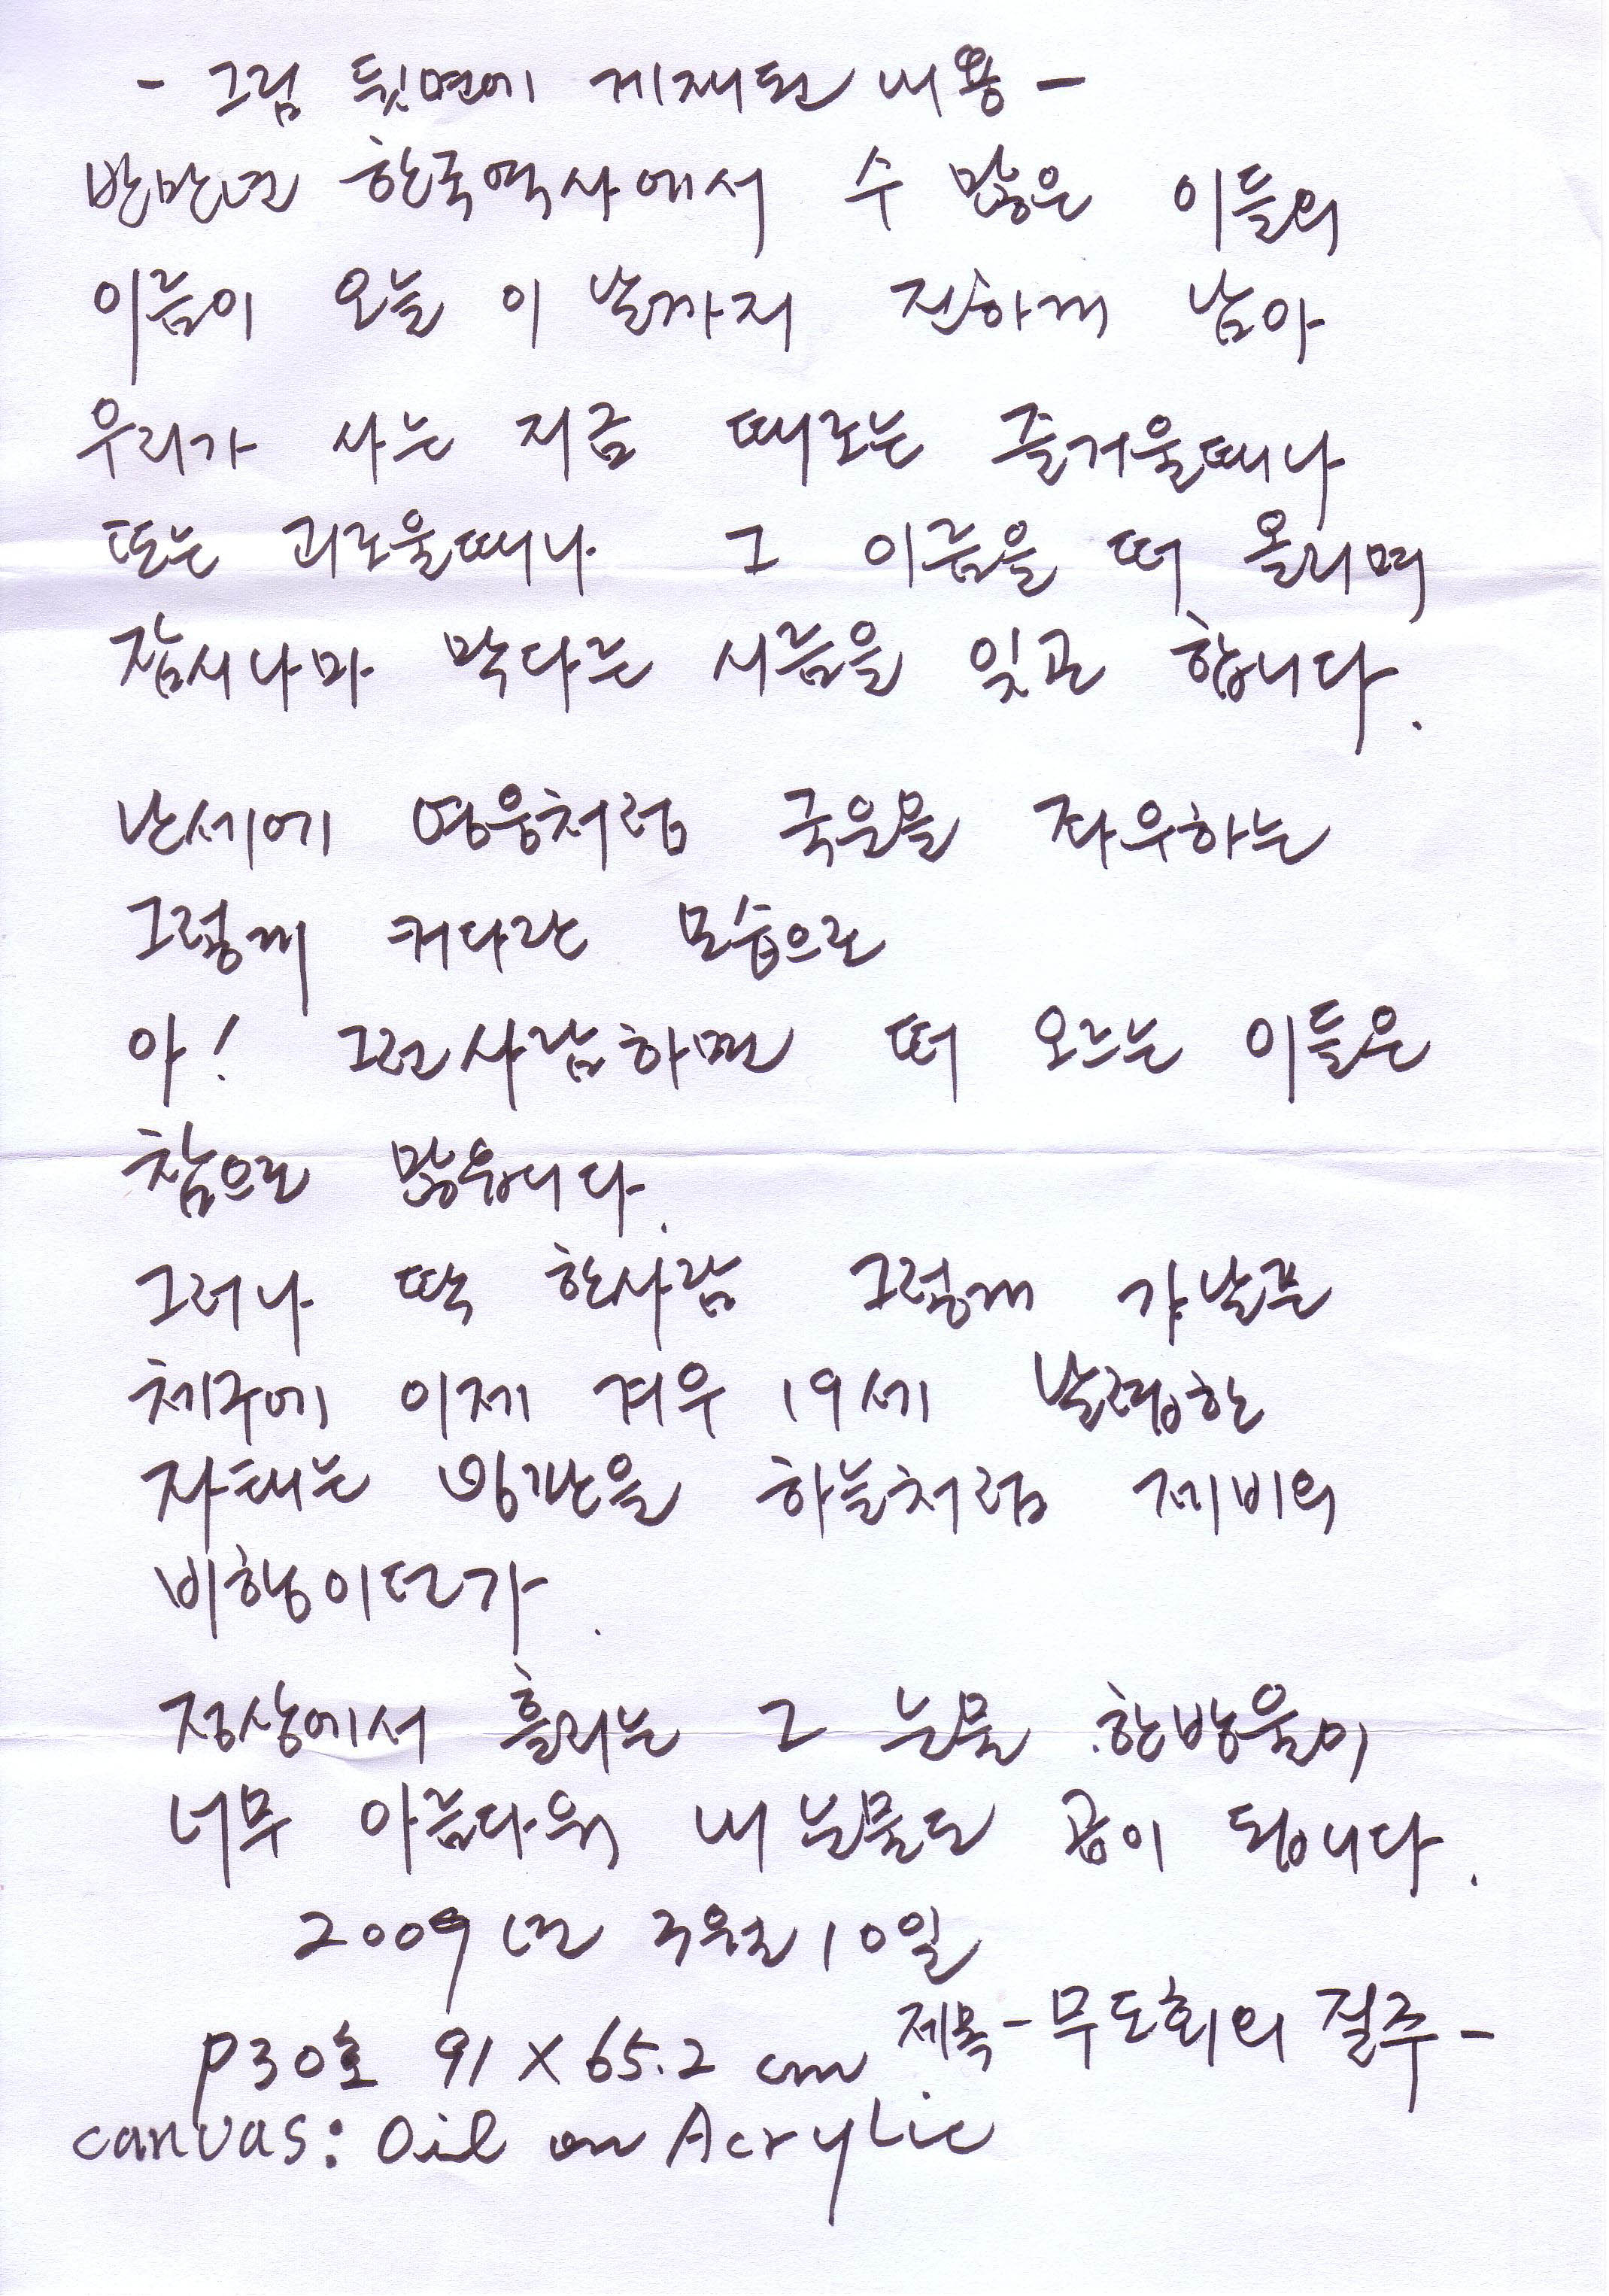 - 그림 뒷면에 게재된 내용 -
반만년 한국역사에서 수 많은 이들의
이름이 오늘 이 날까지 전하게 남아
우리가 사는 지금 때로는 즐거울때나
또는 괴로울때나 그 이름을 떠 올리며
잠시나마 막다른 시름을 잊곤 합니다.
난세에 영웅처럼 국운을 좌우하는
그렇게 커다란 모습으로
아! 그런사람하면 떠 오르는 이들은
참으로 많습니다.
그러나 딱 한사람 그렇게 갸날픈
체구에 이제 겨우 19세 발령한
자태는 빙판을 하늘처럼 제비의
비행이던가.
정상에서 흘리는 그 눈물 한방울이
너무 아름다워 내 눈물도 곱이 됩니다.
2009년 3월 10일
제목 - 무도회의 질주 -
P30호 91 x 65.2 cm
canvas: Oil on Acrylic